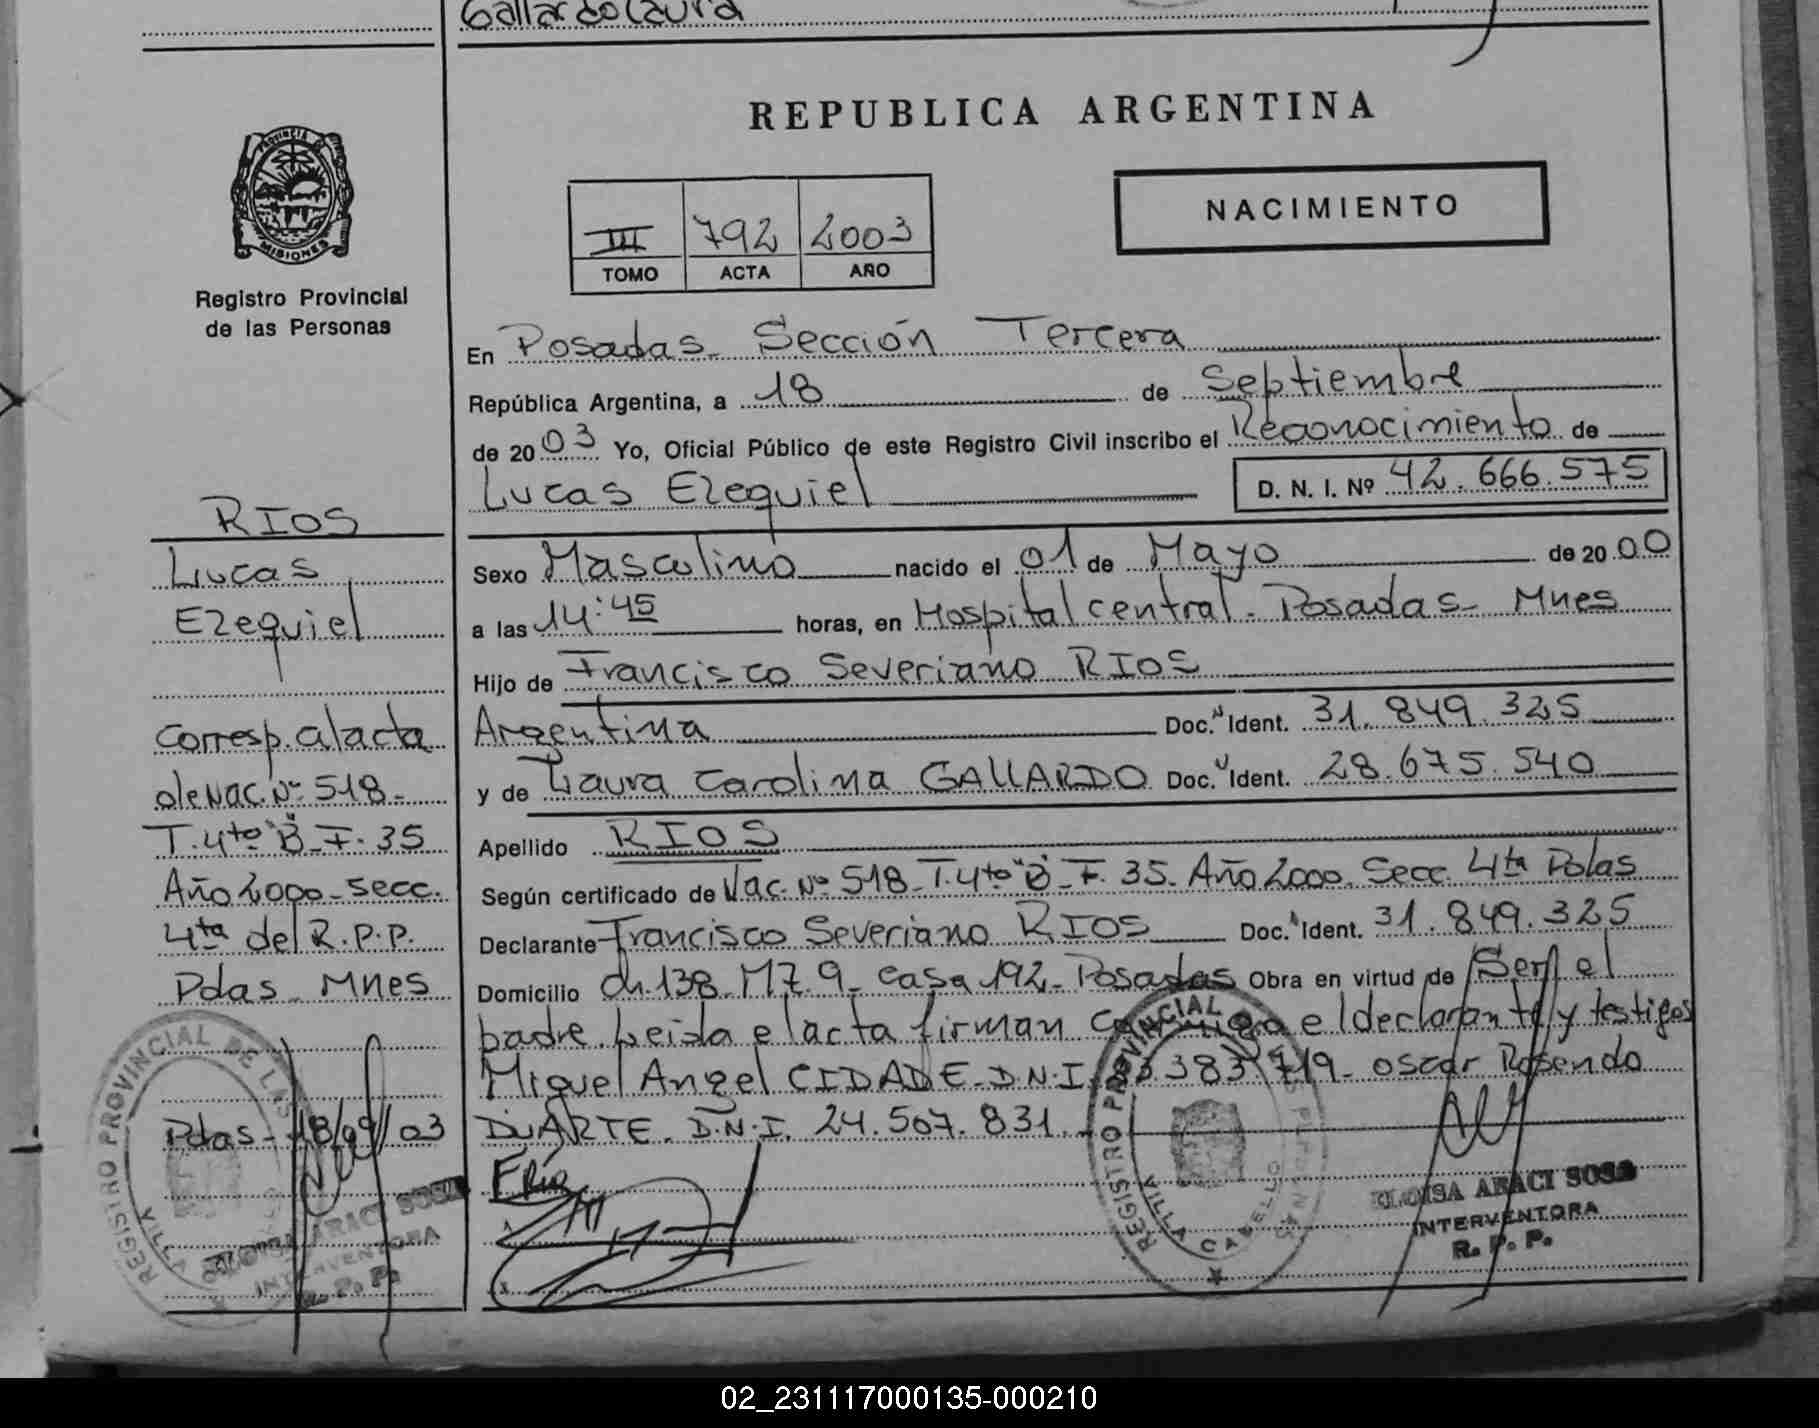 Gallardo Laura
REPUBLICA ARGENTINA
PROVINCIA DE
MISIONES
Registro Provincial
de las Personas
III 792 2003
TOMO ACTA AÑO
NACIMIENTO
En Posadas Sección Tercera
República Argentina, a 18 de Septiembre
de 2003 Yo, Oficial Público de este Registro Civil inscribo el Reconocimiento de
Lucas Ezequiel D. N. I. Nº 42.666.575
Sexo Masculino nacido el 01 de Mayo de 2000
a las 14:45 horas, en Hospital central - Posadas - Mnes
Hijo de Francisco Severiano RIOS
Argentina Doc. Ident. 31.849.325
y de Laura Carolina GALLARDO Doc. Ident. 28.675.540
Apellido RIOS
Según certificado de Nac. Nº 518 - T. 4to "B" - F. 35. Año 2000. Secc. 4ta Pdas
Declarante Francisco Severiano RIOS Doc. Ident. 31.849.325
Domicilio ch. 138 - MZ. 9 - casa 192 - Posadas Obra en virtud de Ser el
padre. Leida el acta firman conmigo el declarante y testigos
Miguel Angel CIDADE - D.N.I. 383.719 - Oscar Rosendo
DUARTE. D.N.I. 24.507.831
RIOS
Lucas
Ezequiel
corresp. al acta
de Nac. Nº 518 -
T. 4to "B" - F. 35
Año 2000 - secc.
4ta del R.P.P.
Pdas - Mnes
Pdas - 18/09/03
REGISTRO PROVINCIAL DE LAS
VILLA
ELOISA ARACI SOSA
INTERVENTORA
R. P. P.
FRios
REGISTRO PROVINCIAL
VILLA CABELLO
ELOISA ARACI SOSA
INTERVENTORA
R. P. P.
02_231117000135-000210